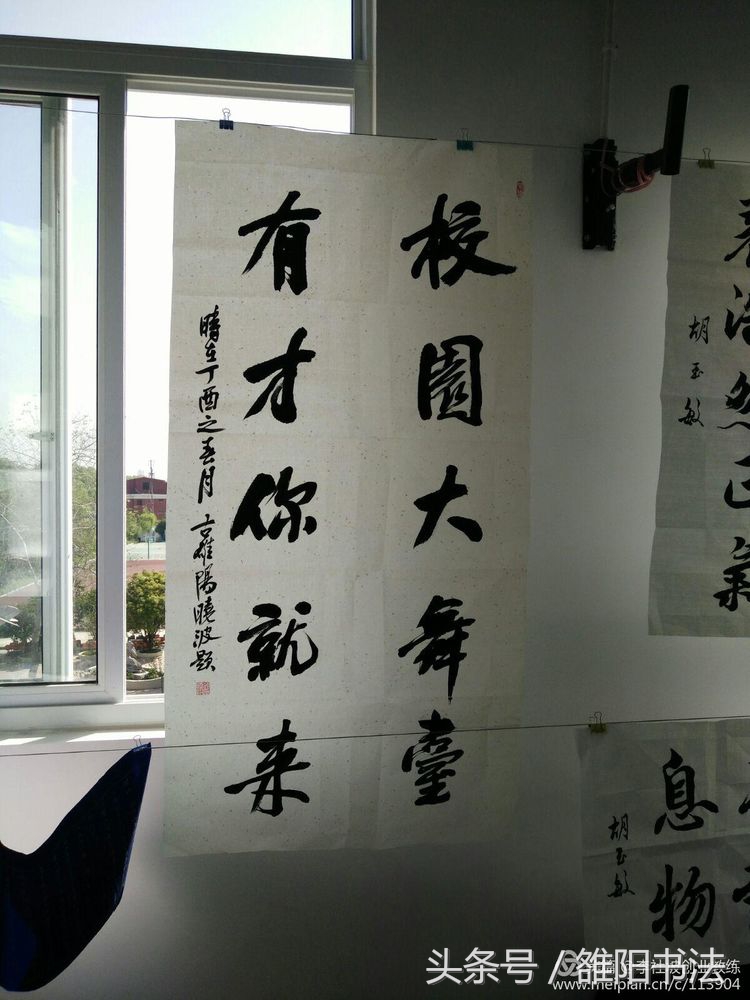 校園大舞臺
有才你就来
時在丁酉之春月 古雒陽曉波题
然正氣
胡玉敏
息物
胡玉敏
头条号 / 雒阳书法
www.meipian.cn/c/113904